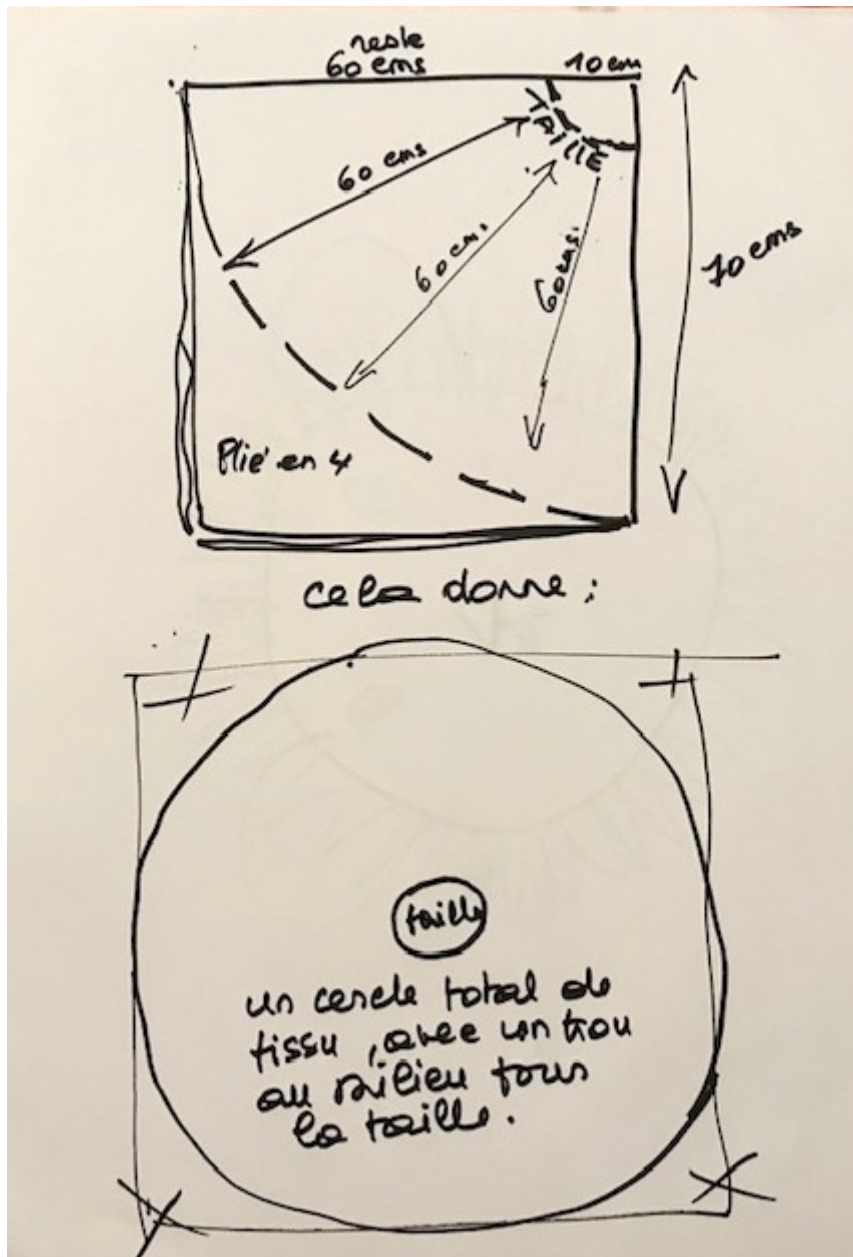 reste
60 cms
10 cm
TAILLE
60 cms
60 cm.
60 cms.
70 cms
Plié en 4
cela donne :
taille
un cercle total de
tissu, avec un trou
au milieu pour
la taille.